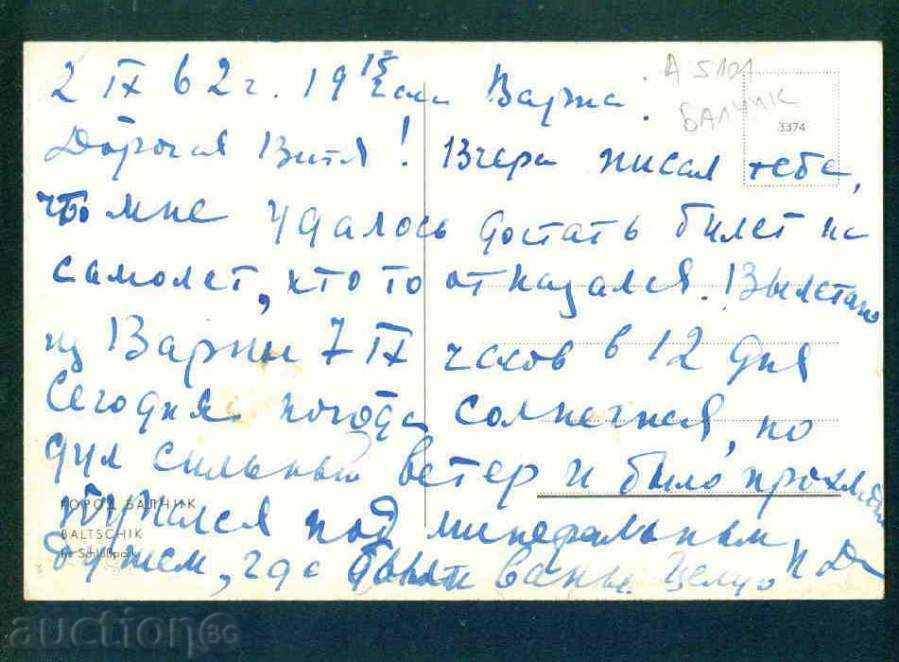 2 IX 62 г. 19 15 часа Варна.
А 5101
БАЛЧИК
3374
Дорогая Витя! Вчера писал тебе,
что мне удалось достать билет на
самолет, кто то отказался. Вылетаю
из Варны 7 IX часов в 12 дня
Сегодня погода солнечная, но
дул сильный ветер и было прохладно
ГОРОД БАЛЧИК
BALTSCHIK
Schloßpark
Купался под минеральным
душем, где были ванны. Целую
auction BG